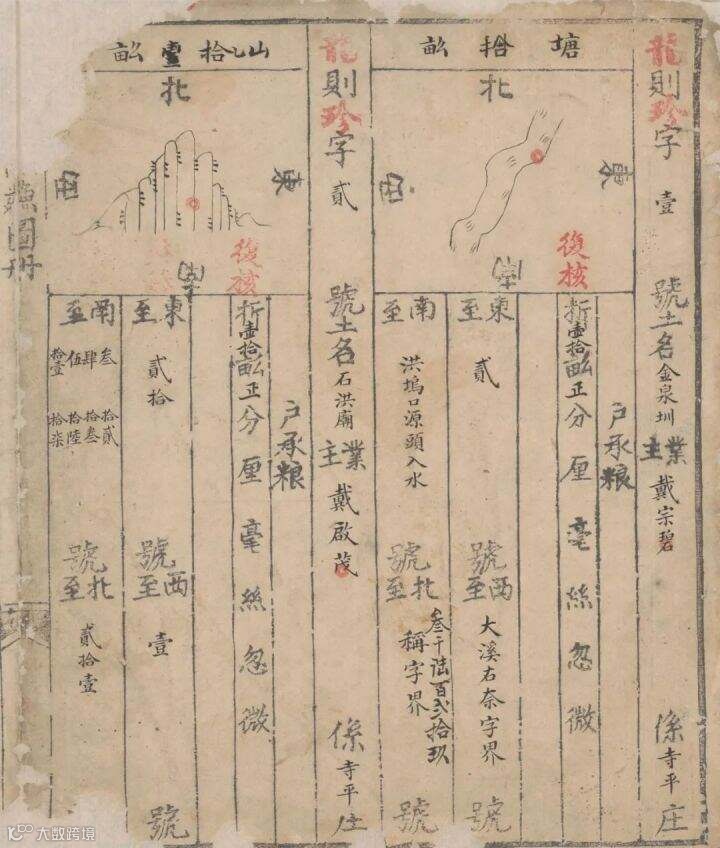 龍則珍字壹號土名金泉圳業主戴宗碧係寺平庄
塘拾畝
北
東
西
南
復核
戶承粮
折壹拾畝正分厘毫絲忽微
東至貳號
西至大溪右奈字界號
南至洪塢口源頭入水號
北至叁千陸百貳拾玖
稱字界號
龍則珍字貳號土名石洪廟業主戴啟茂係寺平庄
山拾壹畝
北
東
西
南
復核
戶承粮
折壹拾畝正分厘毫絲忽微
東至貳拾號
西至壹號
南至
叁 拾貳
肆 拾叁
伍 拾陸
拾壹 拾柒
號
北至貳拾壹
鱗圖冊
大数跨境